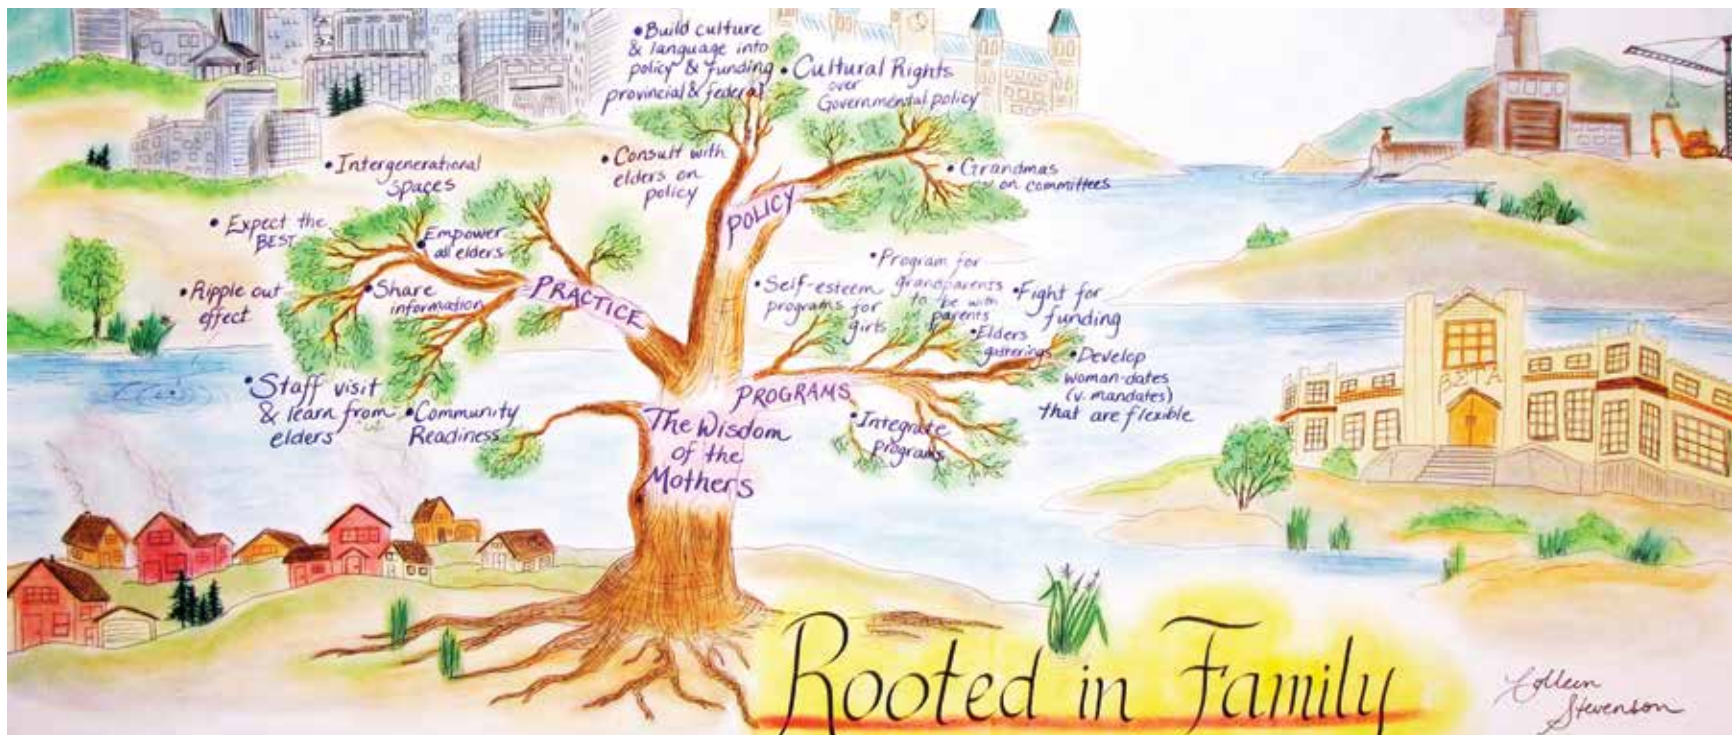 •Build culture
& language into
policy & funding
provincial & federal
•Cultural Rights
over
Governmental policy
•Consult with
elders on
policy
•Grandmas
on committees
POLICY
•Intergenerational
spaces
•Expect the
BEST
•Empower
all elders
•Ripple out
effect
•Share
information
PRACTICE
•Staff visit
& learn from
elders
•Community
Readiness
•Self-esteem
programs for
girls
•Program for
grandparents
to be with
parents
•Fight for
funding
•Elders
gatherings
•Develop
woman-dates
(v. mandates)
that are flexible
PROGRAMS
•Integrate
programs
The Wisdom
of the
Mothers
Rooted in Family
Colleen
Stevenson